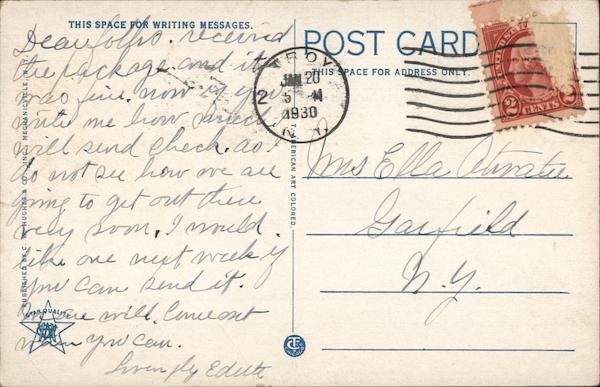 THIS SPACE FOR WRITING MESSAGES.
Dear folks. received
the package and it
was fine. now if you
write me how much I
will send check. as I
do not see how we are
going to get out there
very soon. I would
like one next week if
you can send it.
we will. Come out
when you can.
Lovingly Edith
POST CARD
THIS SPACE FOR ADDRESS ONLY.
TROY
JAN 20
5 M
1930
N.Y.
2
2 CENTS 2
Mrs Ella Atwater
Garfield
N.Y.
AMERICAN ART COLORED.
MECHANICVILLE, N.Y.
STAR QUALITY